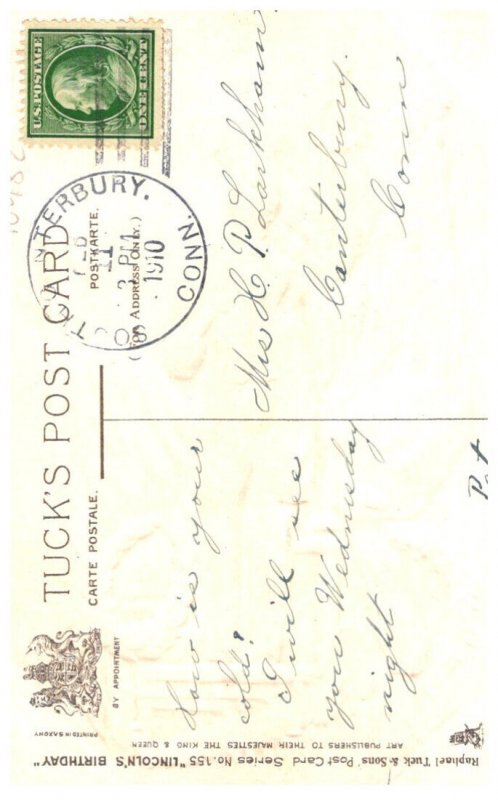 TUCK'S POST CARD
CARTE POSTALE.
POSTKARTE.
(FOR ADDRESS ONLY.)
BY APPOINTMENT
PRINTED IN SAXONY
U.S. POSTAGE
ONE CENT
TERBURY.
CONN.
FEB
11
3 PM
1910
How is your
cold?
I will see
you Wednesday
night
Mrs H. P. Larkham
Canterbury.
Conn
Raphael Tuck & Sons' Post Card Series No. 155 "LINCOLN'S BIRTHDAY"
ART PUBLISHERS TO THEIR MAJESTIES THE KING & QUEEN